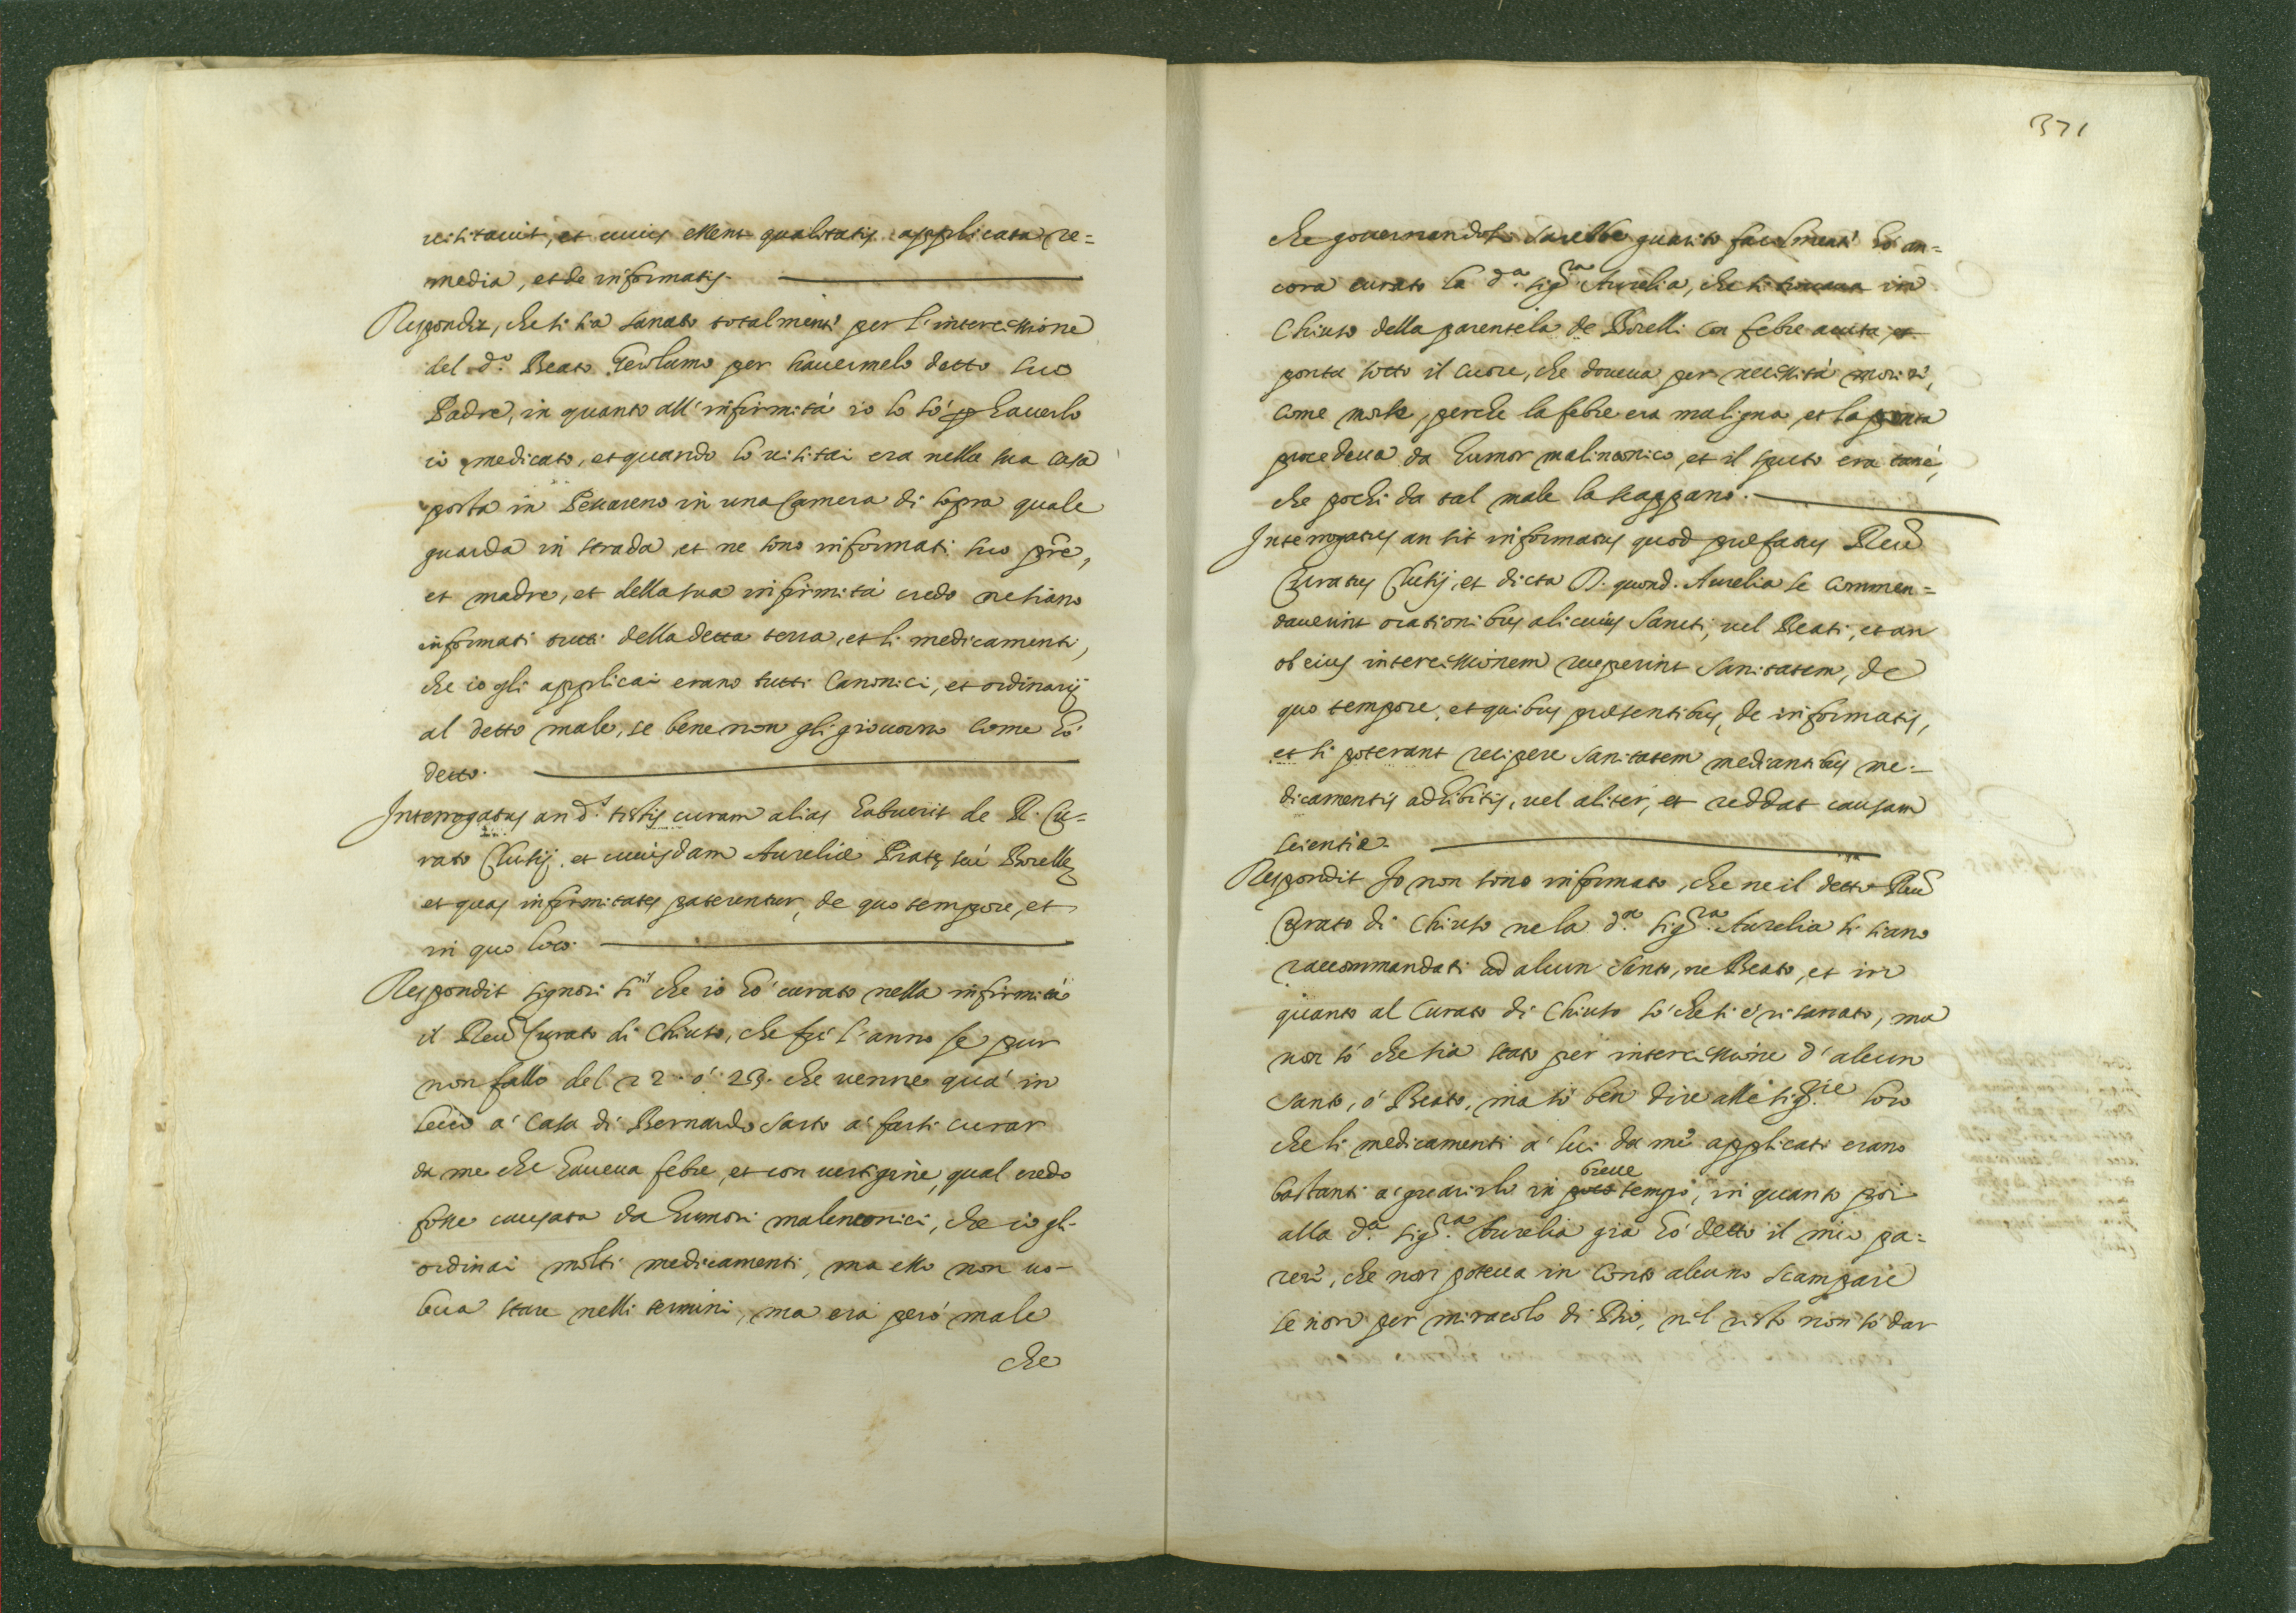 uisitauit, et cuius essent qualitatis applicata re=
media, et de informatis.
Respondit, che si sia sanato totalmente per l'intercessione
del d.º Beato Gerolamo per hauermelo detto suo
Padre, in quanto all'infirmità io lo sò p hauerlo
io medicato, et quando lo uisitai era nella sua casa
posta in Pescareno in una camera di sopra quale
guarda in strada, et ne sono informati suo pre,
et madre, et della sua infirmità credo ne siano
informati tutti della detta terra, et li medicamenti,
che io gli applicai erano tutti Canonici, et ordinarij
al detto male, se bene non gli giouorno come hò
detto.
Interrogatus an d.s testis curam alias habuerit de R. Cu=
rato Clusij, et cuiusdam Aureliæ Pratę siué Borellę
et quas infirmitates paterentur, de quo tempore, et
in quo loco.
Respondit signori si che io hò curato nella infirmità
il Reu Curato di Chiuso, che fù l'anno se pur
non fallo del 22. ó 23. che uenne quà in
Lecco à casa di Bernardo Sarto à farsi curar
da me che haueua febre, et con uertigine, qual credo
fosse causata da humori malenconici, che io gli
ordinai molti medicamenti, ma esso non uo=
leua stare nelli termini, ma era peró male
che
371
che gouernandosi sarebbe guarito facilmente hò an=
cora curato la d.a sig.ra Aurelia, che si trouaua in
Chiuso della parentela de Borelli con febre acuta et
ponta sotto il cuore, che doueua per necessità morire,
come morse, perche la febre era maligna, et la ponta
procedeua da humor malinconico, et il sputo era tané,
che pochi da tal male la scappano.
Interrogatus an sit informatus quod præfatus Reu
Curatus Clusij, et dicta D. quond. Aurelia se commen=
dauerint orationibus alicuius Sancti, uel Beati, et an
ob eius intercessionem receperint sanitatem, de
quo tempore, et quibus præsentibus, de informatis,
et si poterant recipere sanitatem mediantibus me=
dicamentis adhibitis, uel aliter, et reddat causam
scientiæ.
Respondit Io non sono informato, che ne il detto Reu
Curato di Chiuso ne la d.a sig.ra Aurelia si siano
raccommandati ad alcun santo, ne Beato, et in
quanto al Curato di Chiuso sò che si è risanato, ma
non sò che sia stato per intercessione d'alcun
santo, ó Beato, ma sò ben dire alle sig.rie loro
che li medicamenti à lui da me applicati erano
bastanti à guarirlo in poco breue tempo, in quanto poi
alla d.a sig.ra Aurelia già hò detto il mio pa=
rere, che non poteua in conto alcuno scampare
se non per miracolo di Dio, nel resto non sò dar